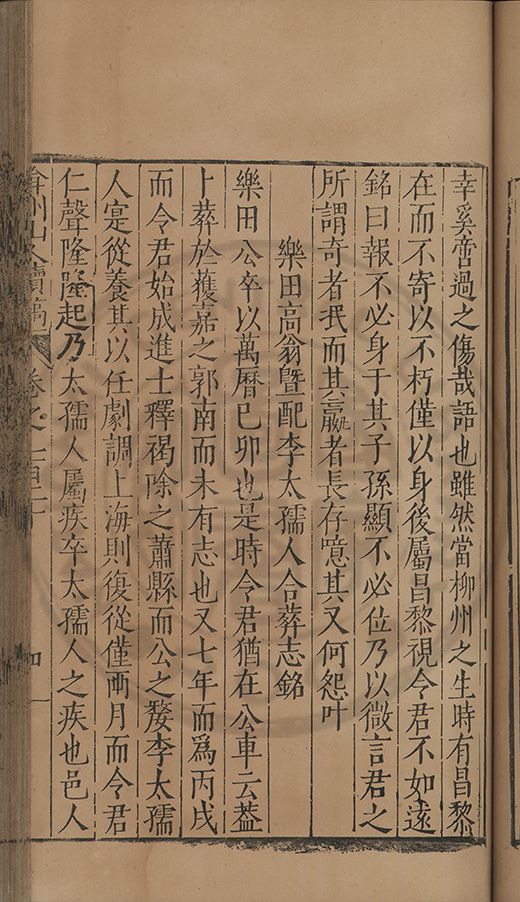 幸奚啻過之傷哉語也雖然當柳州之生時有昌黎
在而不寄以不朽僅以身後屬昌黎視令君不如遠
銘曰報不必身于其子孫顯不必位乃以微言君之
所謂奇者民而其嬴者長存噫其又何怨叶
樂田高翁暨配李太孺人合葬志銘
樂田公卒以萬曆己卯也是時令君猶在公車云葢
卜葬於獲嘉之郭南而未有志也又七年而爲丙戌
而令君始成進士釋褐除之蕭縣而公之嫠李太孺
人寔從養其以任劇調上海則復從僅兩月而令君
仁聲隆隆起乃太孺人屬疾卒太孺人之疾也邑人
弇州山人續稿 卷之一百二十 四